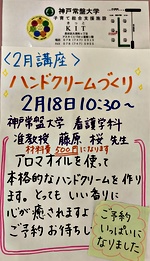 神戸常盤大学
子育て総合支援施設
KIT
<2月講座>
ハンドクリームづくり
2月18日10:30~
神戸常盤大学 看護学科
准教授 藤原 桜 先生
材料費500円になります
アロマオイルを使って
本格的なハンドクリームを作り
ます。とっても いい香りに
心が癒されますよ
ご予約お待ちし
ご予約
いっぱいに
なりました